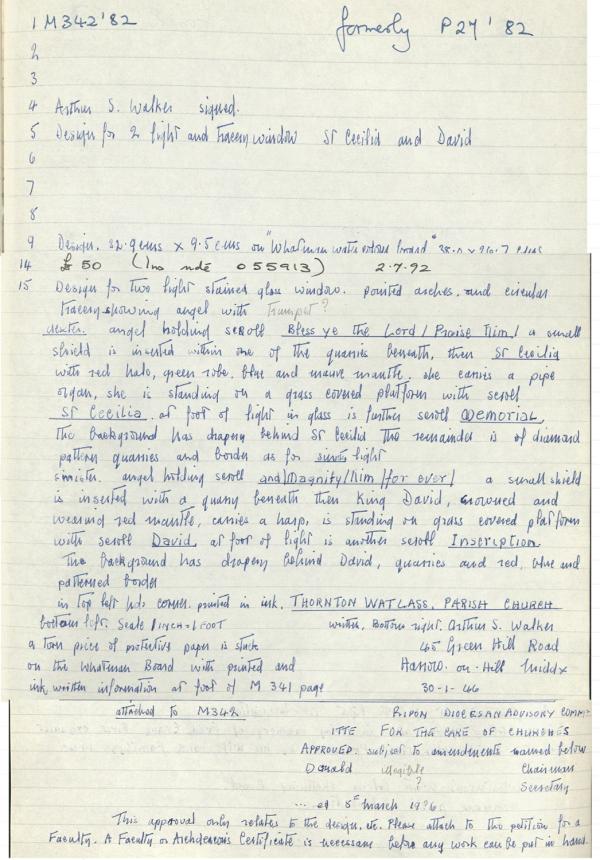 1 M342'82 formerly P27'82
2
3
4 Arthur S. Walker signed.
5 Design for 2 light and tracery window St Cecilia and David
6
7
8
9 Design. 32.9cms x 9.5cms on "Whatman water colour board"
14 £50 (Inc ndé 055913) 2.7.92
15 Design for two light stained glass window. pointed arches. and circular
tracery showing angel with trumpet?
dexter. angel holding scroll Bless ye the Lord / Praise him / a small
shield is inserted within one of the quarries beneath, then St Cecilia
with red halo, green robe. blue and mauve mantle. she carries a pipe
organ, she is standing on a grass covered platform with scroll
St Cecilia. at foot of light in glass is further scroll Memorial,
The background has drapery behind St Cecilia the remainder is of diamond
pattern quarries and border as for light
sinister. angel holding scroll and / Magnify / him / for ever / a small shield
is inserted with a quarry beneath then King David, crowned and
wearing red mantle, carries a harp, is standing on grass covered platform
with scroll David, at foot of light is another scroll Inscription
The background has drapery behind David, quarries and red, blue and
patterned border
in top left hd. corner. printed in ink, THORNTON WATLASS, PARISH CHURCH
bottom left. Scale 1 INCH = 1 FOOT written, Bottom right. Arthur S. Walker
a torn piece of protective paper is stuck 45 Green Hill Road
on the Whatman Board with printed and Harrow. on. Hill Middx
ink written information at foot of M 341 page 30-1-46
attached to M342 RIPON DIOCESAN ADVISORY COMM-
ITTE FOR THE CARE OF CHURCHES
APPROVED. subject to amendments named below
Donald illegible Chairman
? Secretary
... of 5th March 19?6
This approval only relates to the design, etc. Please attach to the petition for a
Faculty. A Faculty or Archdeacons Certificate is necessare before any work can be put in hand